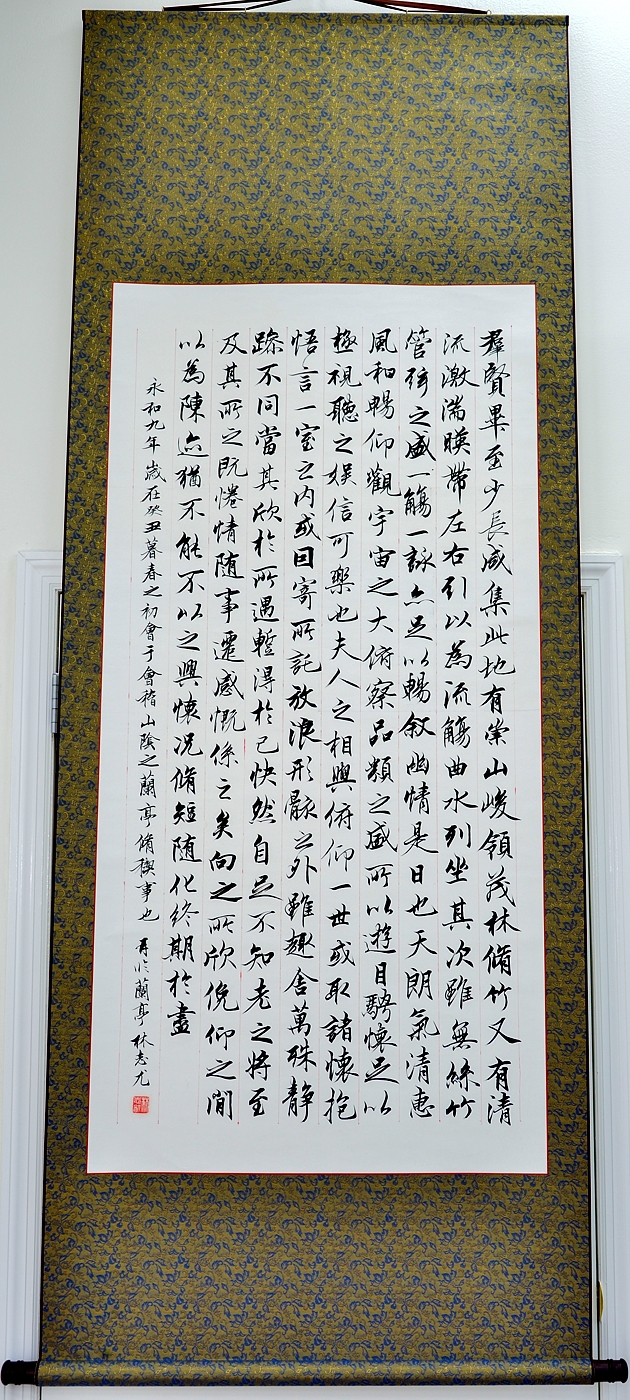 羣賢畢至少長咸集此地有崇山峻領茂林脩竹又有清
流激湍暎帶左右引以為流觴曲水列坐其次雖無絲竹
管弦之盛一觴一詠亦足以暢敘幽情是日也天朗氣清惠
風和暢仰觀宇宙之大俯察品類之盛所以遊目騁懷足以
極視聽之娛信可樂也夫人之相與俯仰一世或取諸懷抱
悟言一室之內或因寄所託放浪形骸之外雖趣舍萬殊静
躁不同當其欣於所遇蹔得於己快然自足不知老之將至
及其所之既惓情随事遷感慨係之矣向之所欣俛仰之閒
以為陳迹猶不能不以之興懷况脩短随化終期於盡
永和九年歲在癸丑暮春之初會于會稽山陰之蘭亭脩禊事也 蘭亭 林志尤